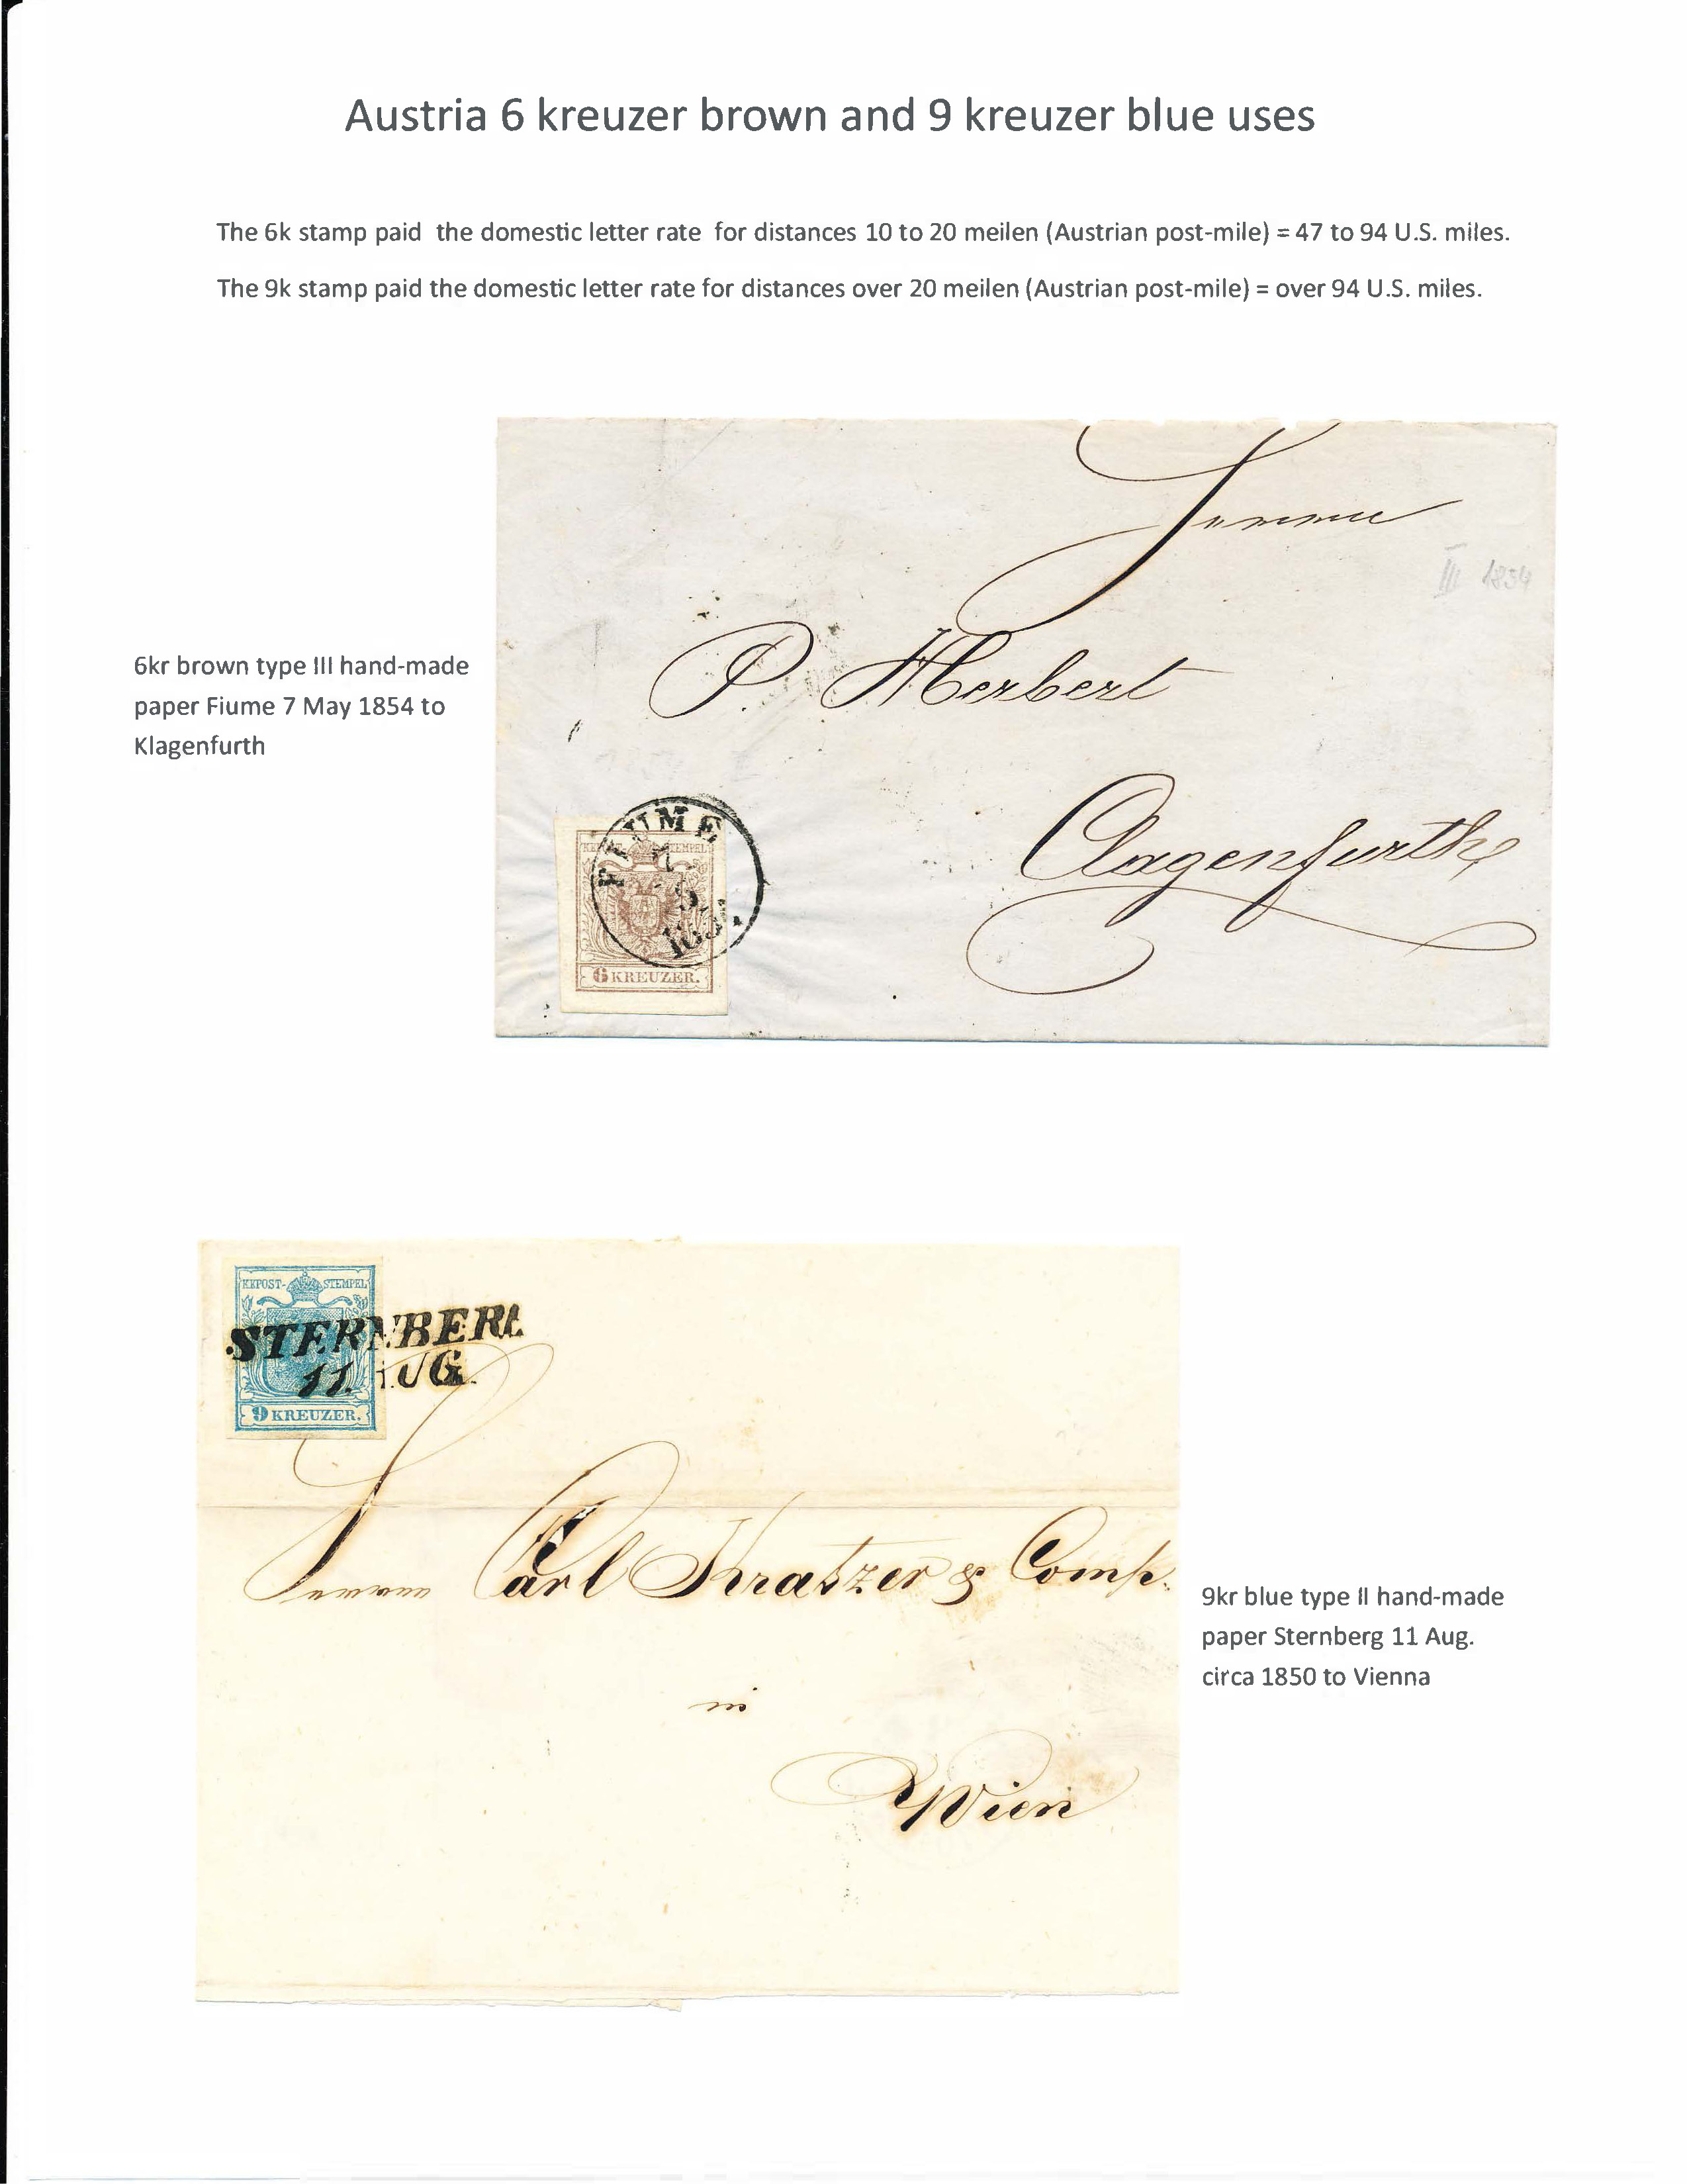 Austria 6 kreuzer brown and 9 kreuzer blue uses
The 6k stamp paid the domestic letter rate for distances 10 to 20 meilen (Austrian post-mile) = 47 to 94 U.S. miles.
The 9k stamp paid the domestic letter rate for distances over 20 meilen (Austrian post-mile) = over 94 U.S. miles.
III 1854
P. Herbert
6kr brown type III hand-made
paper Fiume 7 May 1854 to
Klagenfurth
Clagenfurth
FIUME
7
5
KK POST-STEMPEL
6 KREUZER.
KKPOST-STEMPEL
STERNBERG
11. AUG.
9 KREUZER.
Carl Kratzer & Comp.
9kr blue type II hand-made
paper Sternberg 11 Aug.
circa 1850 to Vienna
in
Wien